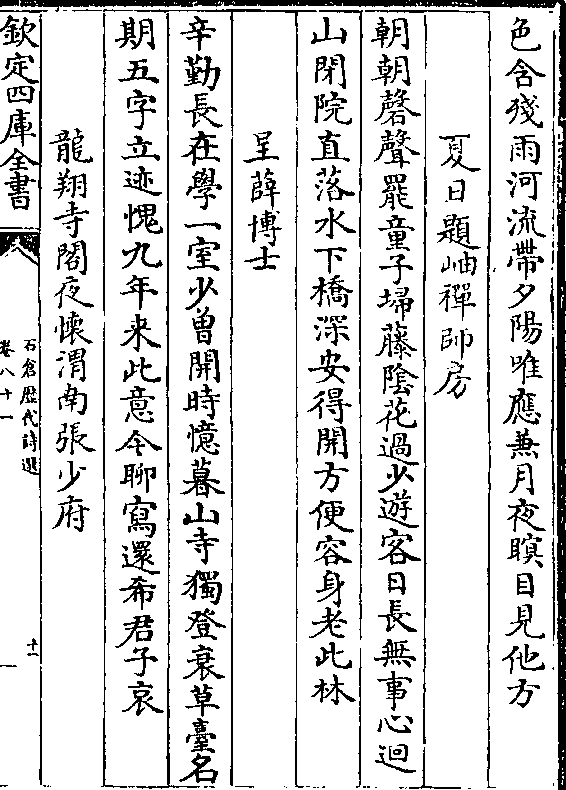 色含殘雨河流帶夕陽唯應兼月夜瞑目見他方
夏日題岫禪師房
朝朝磬聲罷童子埽藤陰花過少遊客日長無事心迴
山閉院直落水下橋深安得開方便容身老此林
呈薛博士
辛勤長在學一室少曽開時憶暮山寺獨登衰草臺名
期五字立迹愧九年来此意今聊寫還希君子哀
龍翔寺閣夜懷渭南張少府
欽定四庫全書
石倉歷代詩選
卷八十一
十一